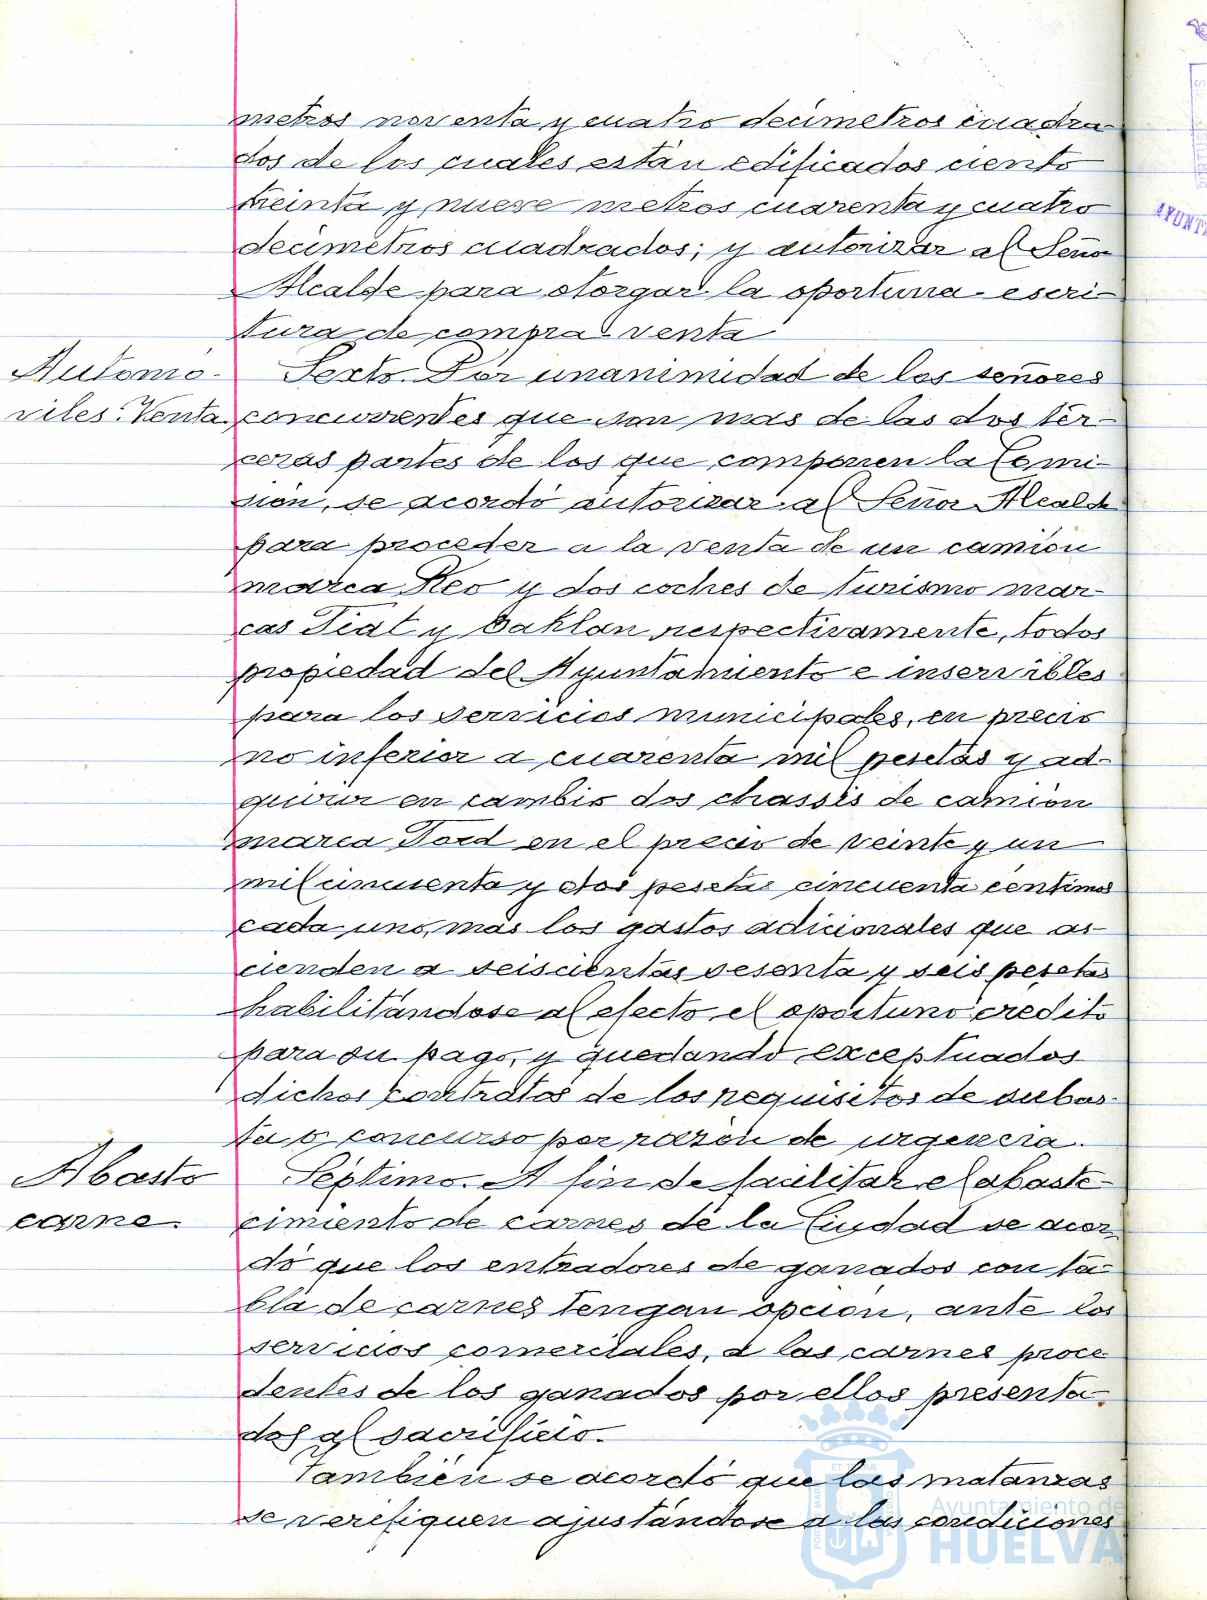 metros noventa y cuatro decimetros cuadra-
dos de los cuales están edificados ciento
treinta y nueve metros cuarenta y cuatro
decimetros cuadrados; y autorizar al Señor
Alcalde para otorgar la oportuna escri-
tura de compra-venta
Automó-
viles. Venta.
Sexto. Por unanimidad de los señores
concurrentes que son mas de las dos ter-
ceras partes de los que componen la Comi-
sión, se acordó autorizar al Señor Alcalde
para proceder a la venta de un camión
marca Reo y dos coches de turismo mar-
cas Fiat y Oaklan respectivamente, todos
propiedad del Ayuntamiento e inservibles
para los servicios municipales, en precio
no inferior a cuarenta mil pesetas y ad-
quirir en cambio dos chassis de camión
marca Ford en el precio de veinte y un
mil cincuenta y dos pesetas cincuenta centimos
cada uno, más los gastos adicionales que as-
cienden a seiscientas sesenta y seis pesetas
habilitándose al efecto el oportuno credito
para su pago, y quedando exceptuados
dichos contratos de los requisitos de subas-
ta o concurso por razón de urgencia.
Abasto
carne.
Séptimo. A fin de facilitar el abaste-
cimiento de carnes de la Ciudad se acor-
dó que los entradores de ganados con ta-
bla de carnes tengan opción, ante los
servicios comerciales, a las carnes proce-
dentes de los ganados por ellos presenta-
dos al sacrificio.
También se acordó que las matanzas
se verifiquen ajustándose a las condiciones
AYUNTA
Ayuntamiento de
HUELVA